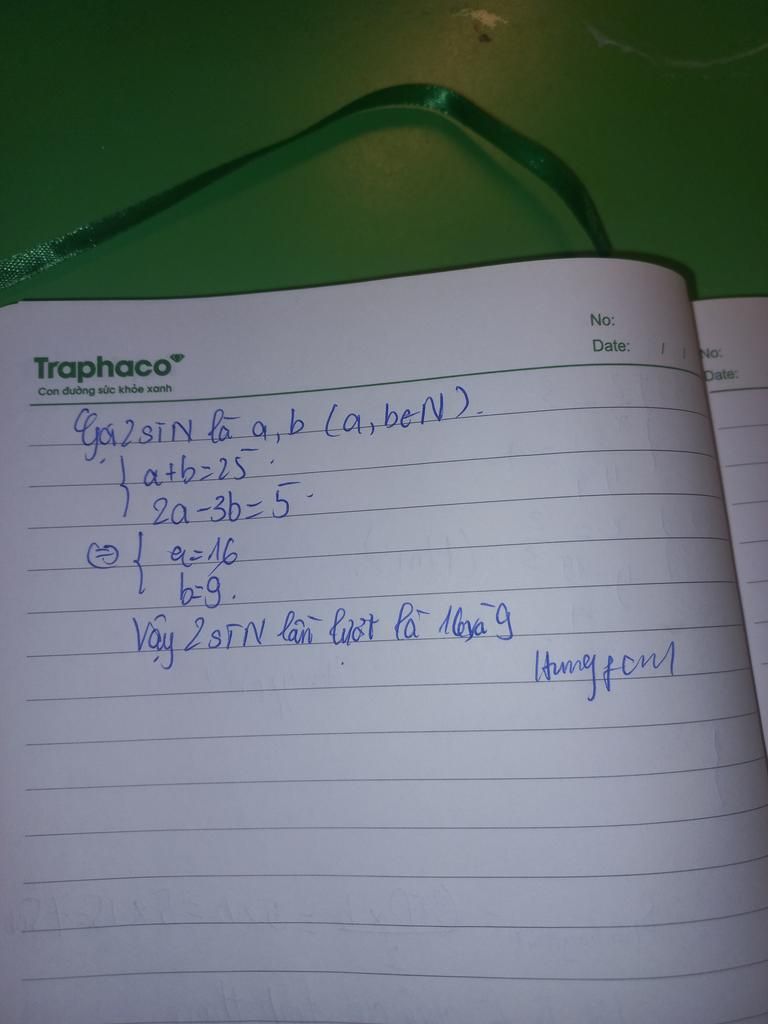 No:
Date: / /
Traphaco
Con đường sức khỏe xanh
No:
Date:
Gọi 2 STN là a, b (a, b∈N).
a+b=25
2a-3b=5
⇔ { a=16
b=9.
Vậy 2 STN lần lượt là 16 và 9